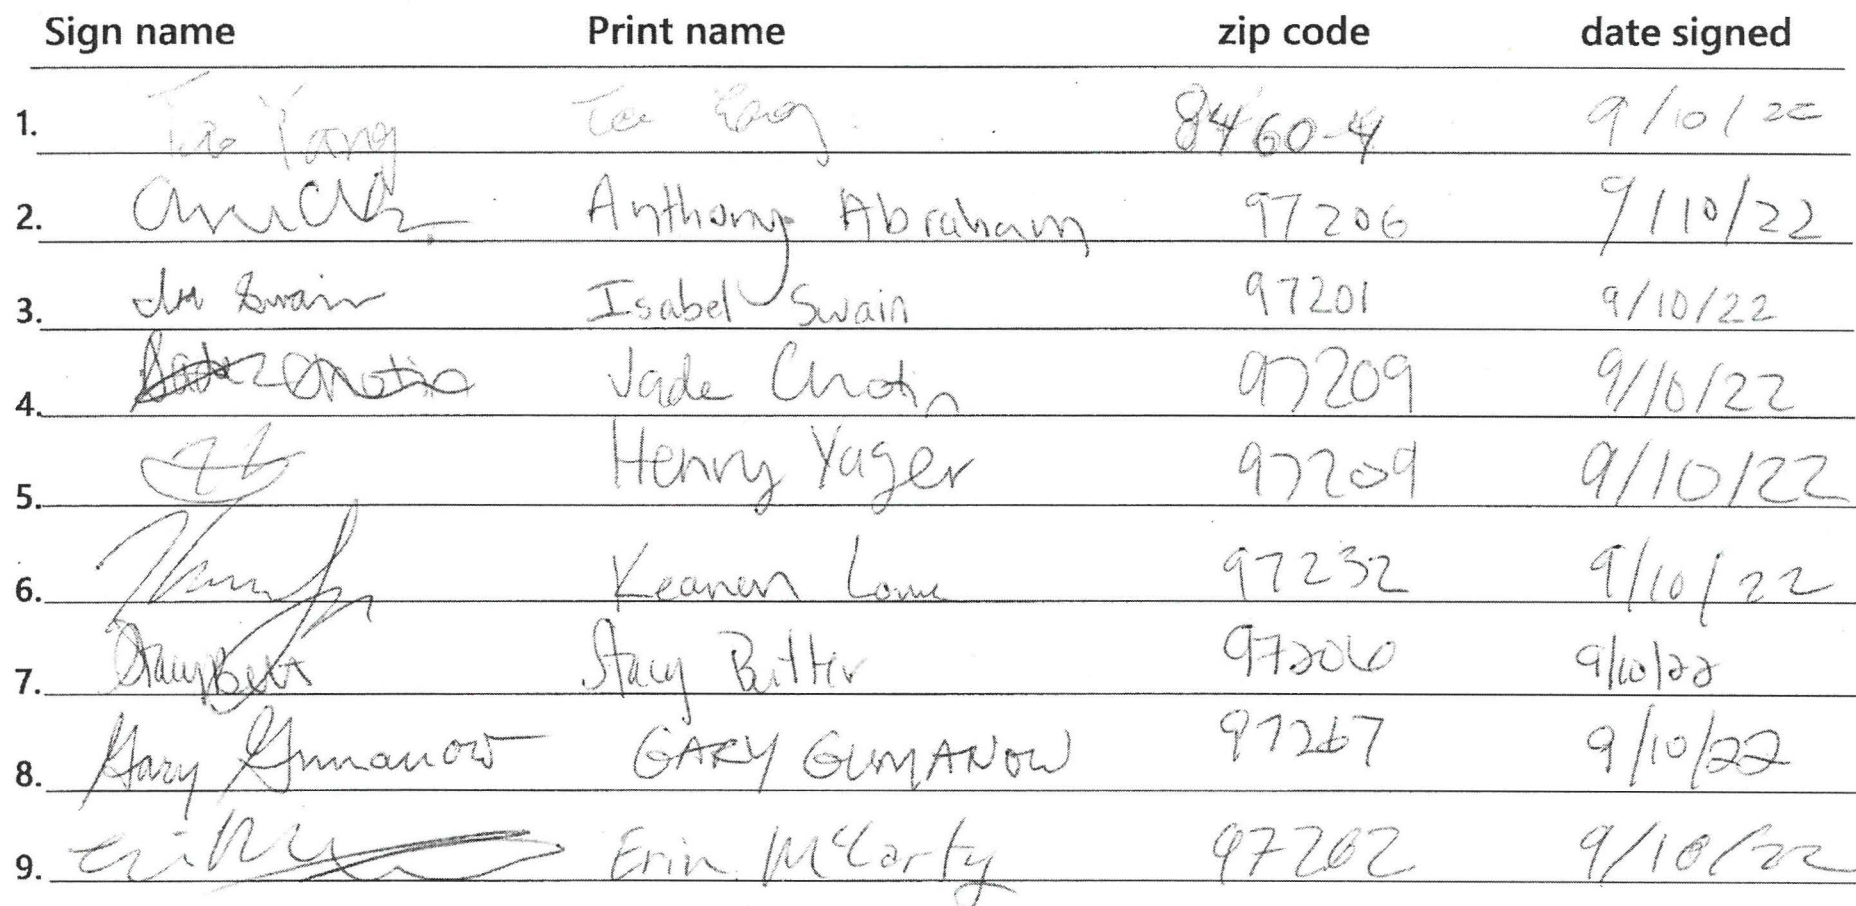 Sign name Print name zip code date signed
1. Yang 8460-4 9/10/22
2. Anthony Abraham 97206 9/10/22
3. Swain Isabel Swain 97201 9/10/22
4. Jade 97209 9/10/22
5. Henry Yager 97209 9/10/22
6. Keanen 97232 9/10/22
7. Stacy Stacy 97206 9/10/22
8. Gary Gumanow GARY GUMANOW 97267 9/10/22
9. Erin McCarty 97202 9/10/22